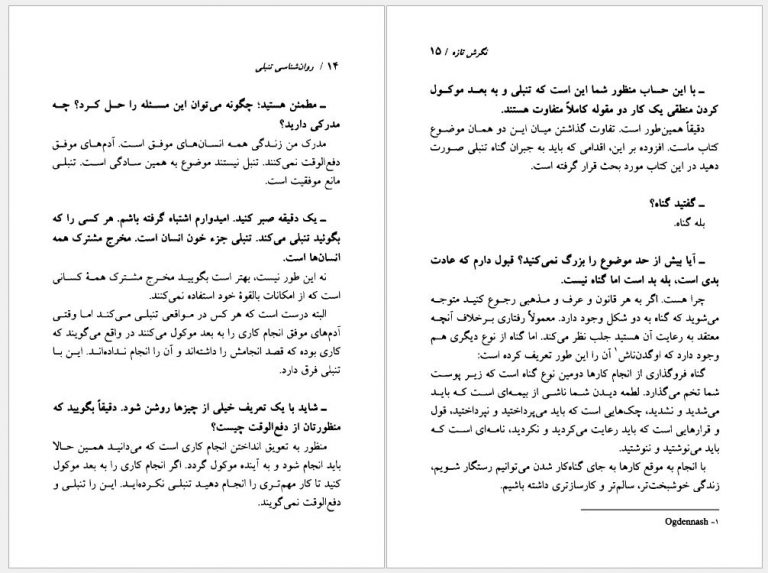 ۱۴ / روان‌شناسی تنبلی
ــ مطمئن هستید؛ چگونه می‌توان این مسئله را حل کرد؟ چه
مدرکی دارید؟
مدرک من زندگی همه انسان‌های موفق است. آدم‌های موفق
دفع‌الوقت نمی‌کنند. تنبل نیستند موضوع به همین سادگی است. تنبلی
مانع موفقیت است.
ــ یک دقیقه صبر کنید. امیدوارم اشتباه گرفته باشم. هر کسی را که
بگوئید تنبلی می‌کند. تنبلی جزء خون انسان است. مخرج مشترک همه
انسان‌ها است.
نه این طور نیست، بهتر است بگویید مخرج مشترک همهٔ کسانی
است که از امکانات بالقوهٔ خود استفاده نمی‌کنند.
البته درست است که هر کس در مواقعی تنبلی می‌کند اما وقتی
آدم‌های موفق انجام کاری را به بعد موکول می‌کنند در واقع می‌گویند که
کاری بوده که قصد انجامش را داشته‌اند و آن را انجام نداده‌اند. این با
تنبلی فرق دارد.
ــ شاید با یک تعریف خیلی از چیزها روشن شود. دقیقاً بگویید که
منظورتان از دفع‌الوقت چیست؟
منظور به تعویق انداختن انجام کاری است که می‌دانید همین حالا
باید انجام شود و به آینده موکول گردد. اگر انجام کاری را به بعد موکول
کنید تا کار مهم‌تری را انجام دهید تنبلی نکرده‌اید. این را تنبلی و
دفع‌الوقت نمی‌گویند.
نگرش تازه / ۱۵
ــ با این حساب منظور شما این است که تنبلی و به بعد موکول
کردن منطقی یک کار دو مقوله کاملاً متفاوت هستند.
دقیقاً همین‌طور است. تفاوت گذاشتن میان این دو همان موضوع
کتاب ماست. افزوده بر این، اقدامی که باید به جبران گناه تنبلی صورت
دهید در این کتاب مورد بحث قرار گرفته است.
ــ گفتید گناه؟
بله گناه.
ــ آیا بیش از حد موضوع را بزرگ نمی‌کنید؟ قبول دارم که عادت
بدی است، بله بد است اما گناه نیست.
چرا هست. اگر به هر قانون و عرف و مذهبی رجوع کنید متوجه
می‌شوید که گناه به دو شکل وجود دارد. معمولاً رفتاری برخلاف آنچه
معتقد به رعایت آن هستید جلب نظر می‌کند. اما گناه از نوع دیگری هم
وجود دارد که اوگدن‌ناش۱ آن را این طور تعریف کرده است:
گناه فروگذاری از انجام کارها دومین نوع گناه است که زیر پوست
شما تخم می‌گذارد. لطمه دیدن شما ناشی از بیمه‌ای است که باید
می‌شدید و نشدید، چک‌هایی است که باید می‌پرداختید و نپرداختید، قول
و قرارهایی است که باید رعایت می‌کردید و نکردید، نامه‌ای است که
باید می‌نوشتید و ننوشتید.
با انجام به موقع کارها به جای گناه‌کار شدن می‌توانیم رستگار شویم،
زندگی خوشبخت‌تر، سالم‌تر و کارسازتری داشته باشیم.
۱- Ogdennash